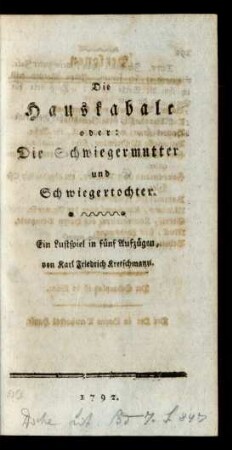 Die
Hauskabale
oder:
Die Schwiegermutter
und
Schwiegertochter.
Ein Lustspiel in fünf Aufzügen,
von Karl Friedrich Kretschmann.
1792.